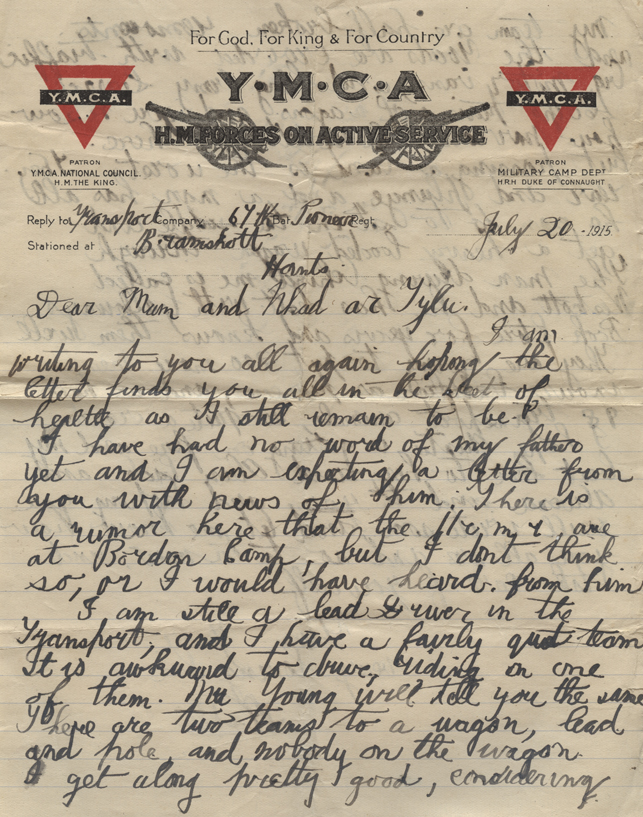 For God, For King & For Country
Y·M·C·A
Y.M.C.A.
Y.M.C.A.
H.M. FORCES ON ACTIVE SERVICE
PATRON
Y.M.C.A. NATIONAL COUNCIL.
H.M. THE KING.
PATRON
MILITARY CAMP DEPT
H.R.H DUKE OF CONNAUGHT
Reply to Transport Company 67th Bat. Pioneer Regt.
July 20 - 1915
Stationed at Bramshott
Hants.
Dear Mam and
I am
writing to you all again hopong the
letter finds you all in he best of
health as I still remain to be.
I have had no word of my father
yet and I am expecting a letter from
you with news of him. There is
a rumor here that the are
at Bordon Camp, but I dont think
so, or I would have heard. from him
I am still a lead Driver in the
Transport, and I have a fairly team
It is awkward to drive, riding on one
of them. Mr Young will tell you the same
There are two teams to a wagon, lead
and pole, and nobody on the wagon.
I get along pretty good, considering